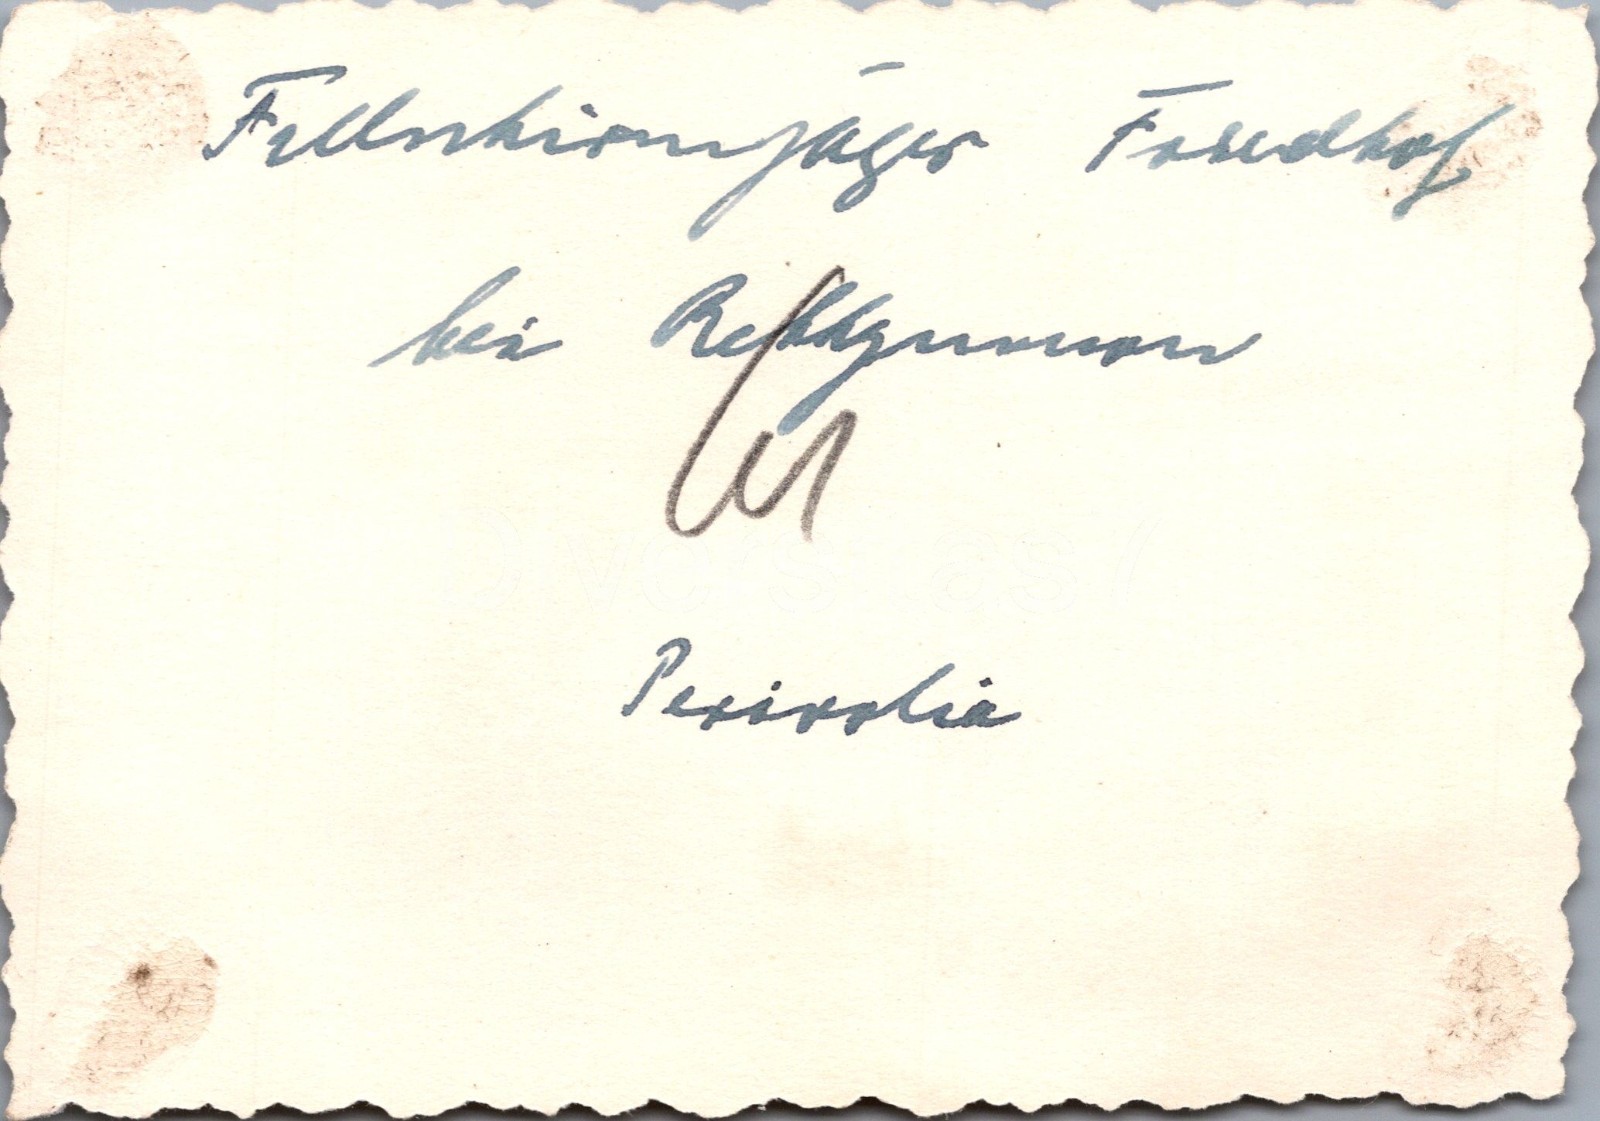 Fallschirmjäger Friedhof
bei Rethymnon
Perivolia